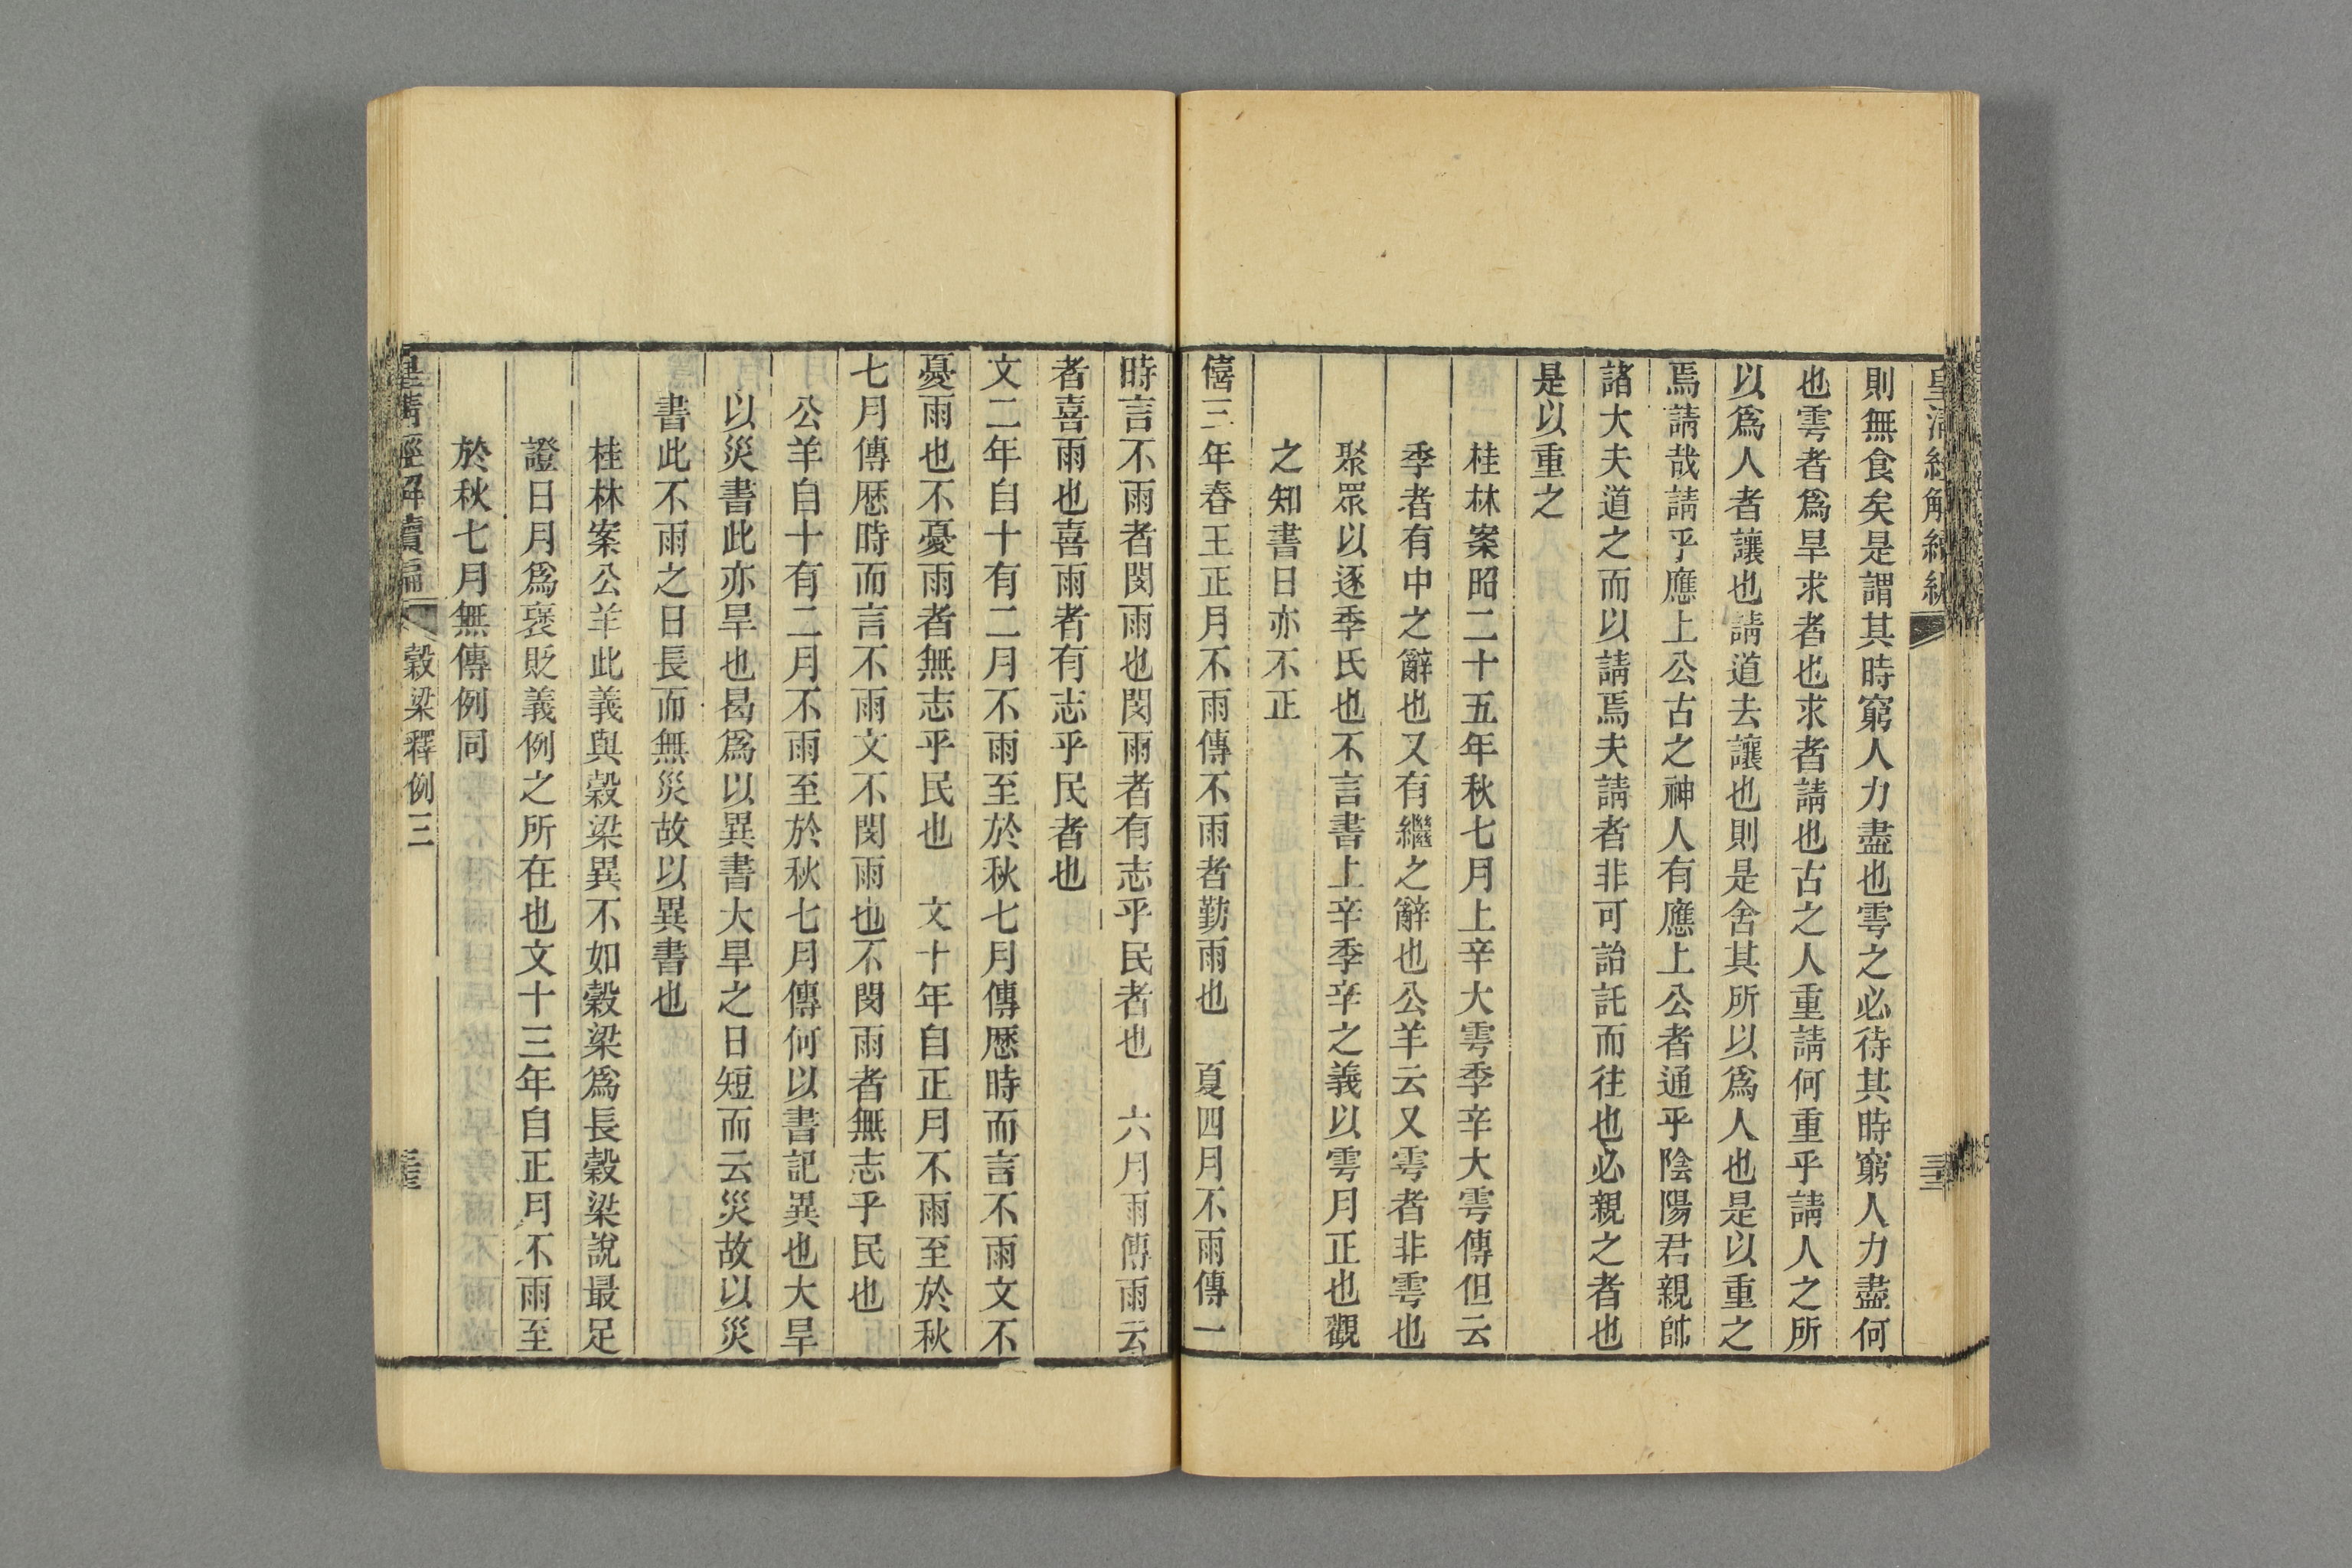 皇清經解續編
則無食矣是謂其時窮人力盡也雩之必待其時窮人力盡何
也雩者爲旱求者也求者請也古之人重請何重乎請人之所
以爲人者讓也請道去讓也則是舍其所以爲人也是以重之
焉請哉請乎應上公古之神人有應上公者通乎陰陽君親帥
諸大夫道之而以請焉夫請者非可詒託而往也必親之者也
是以重之
桂林案昭二十五年秋七月上辛大雩季辛大雩傳但云
季者有中之辭也又有繼之辭也公羊云又雩者非雩也
聚眾以逐季氏也不言書上辛季辛之義以雩月正也觀
之知書日亦不正
僖三年春王正月不雨傳不雨者勤雨也 夏四月不雨傳一
時言不雨者閔雨也閔雨者有志乎民者也 六月雨傳雨云
者喜雨也喜雨者有志乎民者也
文二年自十有二月不雨至於秋七月傳歷時而言不雨文不
憂雨也不憂雨者無志乎民也 文十年自正月不雨至於秋
七月傳歷時而言不雨文不閔雨也不閔雨者無志乎民也
公羊自十有二月不雨至於秋七月傳何以書記異也大旱
以災書此亦旱也曷爲以異書大旱之日短而云災故以災
書此不雨之日長而無災故以異書也
桂林案公羊此義與穀梁異不如穀梁爲長穀梁說最足
證日月爲褒貶義例之所在也文十三年自正月不雨至
於秋七月無傳例同
皇清經解續編 穀梁釋例三